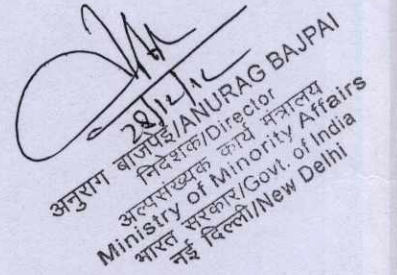 28/12/12
अनुराग बाजपेई/ANURAG BAJPAI
निदेशक/Director
अल्पसंख्यक कार्य मंत्रालय
Ministry of Minority Affairs
भारत सरकार/Govt. of India
नई दिल्ली/New Delhi